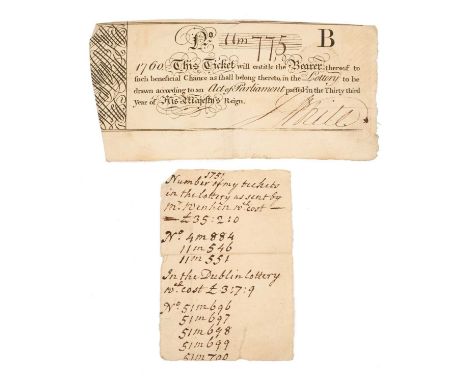 No. 11m 775 B
1760. This Ticket will entitle the Bearer thereof to
such beneficial Chance as shall belong thereto, in the Lottery to be
drawn according to an Act of Parliament passed in the Thirty third
Year of His Majesty's Reign.
1757
Number of my tickets
in the lottery as sent by
Mr. wch cost
£35:2:0
No 4m884
11m546
11m551
In the Dublin lottery
wch cost £3:7:9
No 51m696
51m697
51m698
51m699
51m700